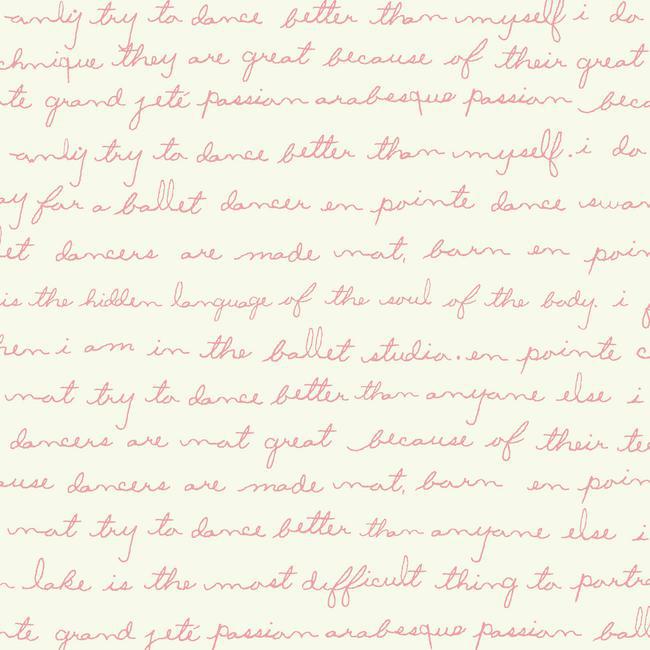 only try to dance better than myself i do
chnique they are great because of their great
te grand jeté passion arabesque passion beca
only try to dance better than myself. i do
ay for a ballet dancer en pointe dance swan
et dancers are made not, born en poin
is the hidden language of the soul of the body. i
hen i am in the ballet studio. en pointe
not try to dance better than anyone else i
dancers are not great because of their te
ause dancers are made not, born en poin
not try to dance better than anyone else i
n lake is the most difficult thing to portra
nte grand jeté passion arabesque passion ball